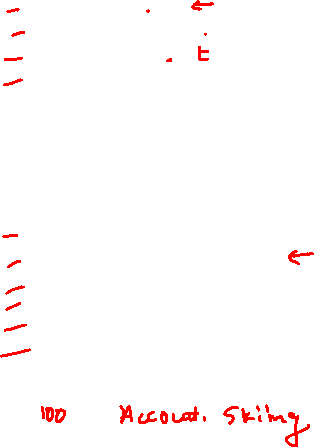 t
100 Account. Skiing